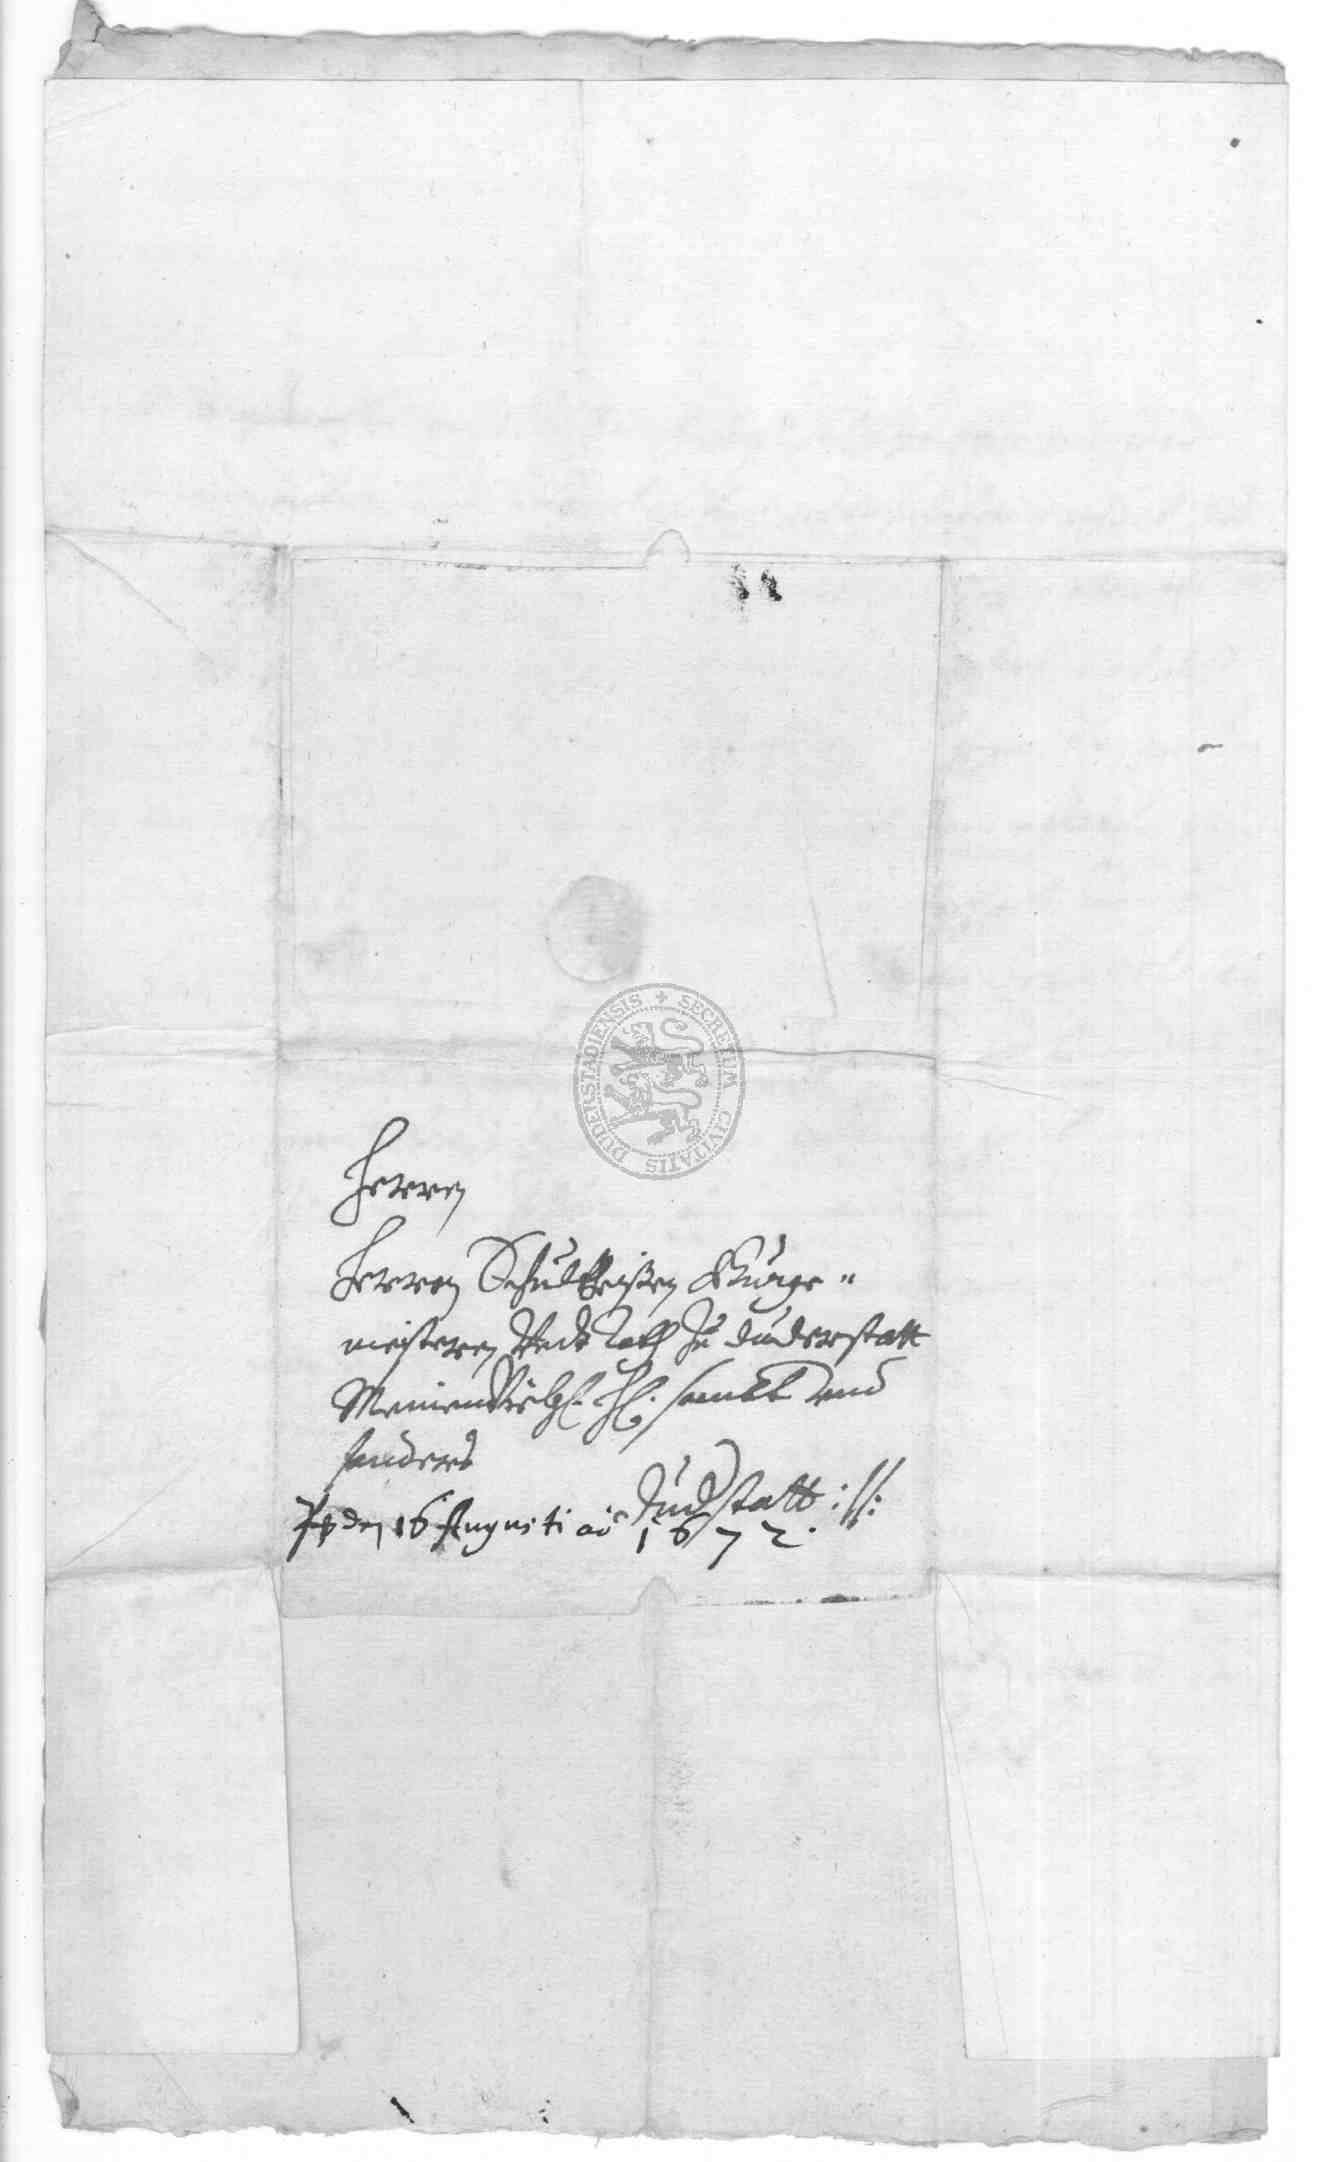 SECRETUM CIVITATIS DUDERSTADIENSIS
Herren
Herren Schultheißen Burge"
meisteren Vndt Rath zu duderstatt
Meinen sambt vnd
sonders
Dud statt ://:
den 16 Augusti ao 1672.